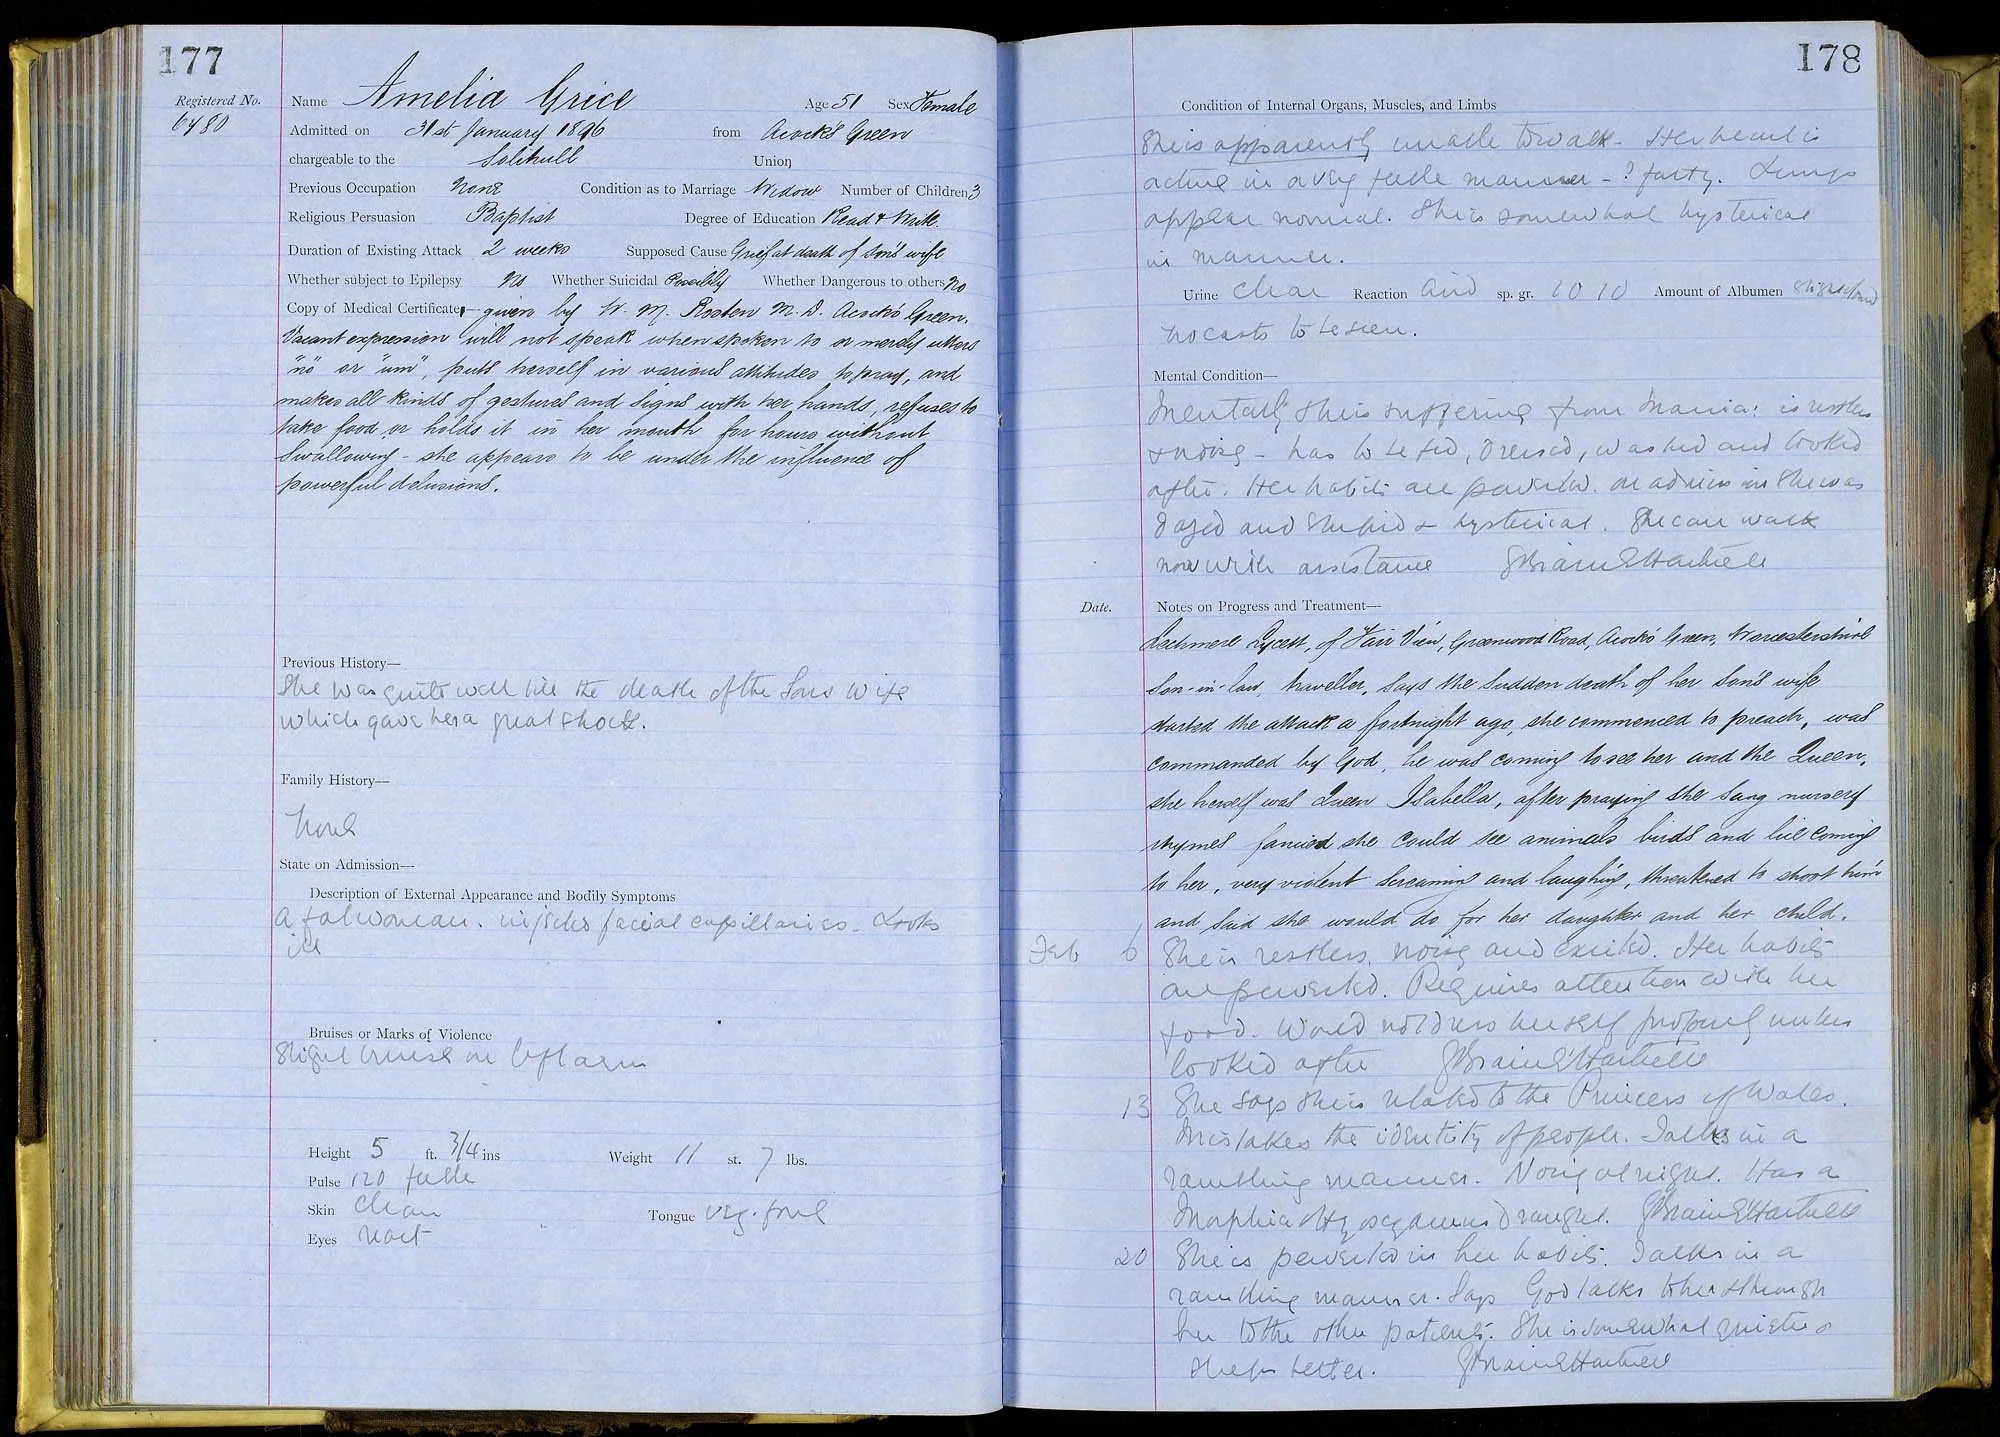 177
Registered No.
6480
Name Amelia Grice Age 51 Sex Female
Admitted on 31st January 1896 from Acock's Green
chargeable to the Solihull Union
Previous Occupation None Condition as to Marriage Widow Number of Children 3
Religious Persuasion Baptist Degree of Education Read & Write.
Duration of Existing Attack 2 weeks Supposed Cause Grief at death of son's wife
Whether subject to Epilepsy No Whether Suicidal Possibly Whether Dangerous to others No
Copy of Medical Certificate,— given by W. M. M.D. Acock's Green.
Vacant expression will not speak when spoken to or merely utters
"no" or "um", puts herself in various attitudes to pray, and
makes all kinds of gestures and signs with her hands, refuses to
take food or holds it in her mouth for hours without
swallowing - she appears to be under the influence of
powerful delusions.
Previous History—
She was quite well till the death of the Sons Wife
which gave her a great shock.
Family History—
None
State on Admission—
Description of External Appearance and Bodily Symptoms
A fat woman. injected facial capillaries. Looks
ill
Bruises or Marks of Violence
Slight bruise on left arm
Height 5 ft. 3/4 ins Weight 11 st. 7 lbs.
Pulse 120 feeble
Skin Clean Tongue very foul
Eyes
178
Condition of Internal Organs, Muscles, and Limbs
She is apparently unable to walk - Her heart is
acting in a very feeble manner - ? fatty. Lungs
appear normal. She is somewhat hysterical
in manner.
Urine Clear Reaction Acid sp. gr. 1010 Amount of Albumen Slight cloud
no casts to be seen.
Mental Condition—
Mentally she is suffering from Mania: is restless
& noisy - has to be fed, dressed, washed and looked
after. Her habits are perverted. on admission she was
dazed and stupid & hysterical. She can walk
now with assistance
Date. Notes on Progress and Treatment—
Lechmere Lycett, of Fair View, Greenwood Road, Acock's Green, Worcestershire
Son-in-law, traveller, says the sudden death of her son's wife
started the attack a fortnight ago, she commenced to preach, was
commanded by God, he was coming to see her and the Queen,
she herself was Queen Isabella, after praying she sang nursery
rhymes fancied she could see animals birds and coming
to her, very violent screaming and laughing, threatened to shoot him
and said she would do for her daughter and her child.
Feb 6 She is restless, noisy and excited. Her habits
are perverted. Requires attention with her
food. Would not dress herself properly unless
looked after
13 She says she is related to the Princess of Wales.
Mistakes the identity of people. Talks in a
rambling manner. Noisy at night. Has a
Morphia & Hyoscyamus draught.
20 She is perverted in her habits. Talks in a
rambling manner. Says God talks to her & through
her to the other patients. She is somewhat quieter &
sleeps better.